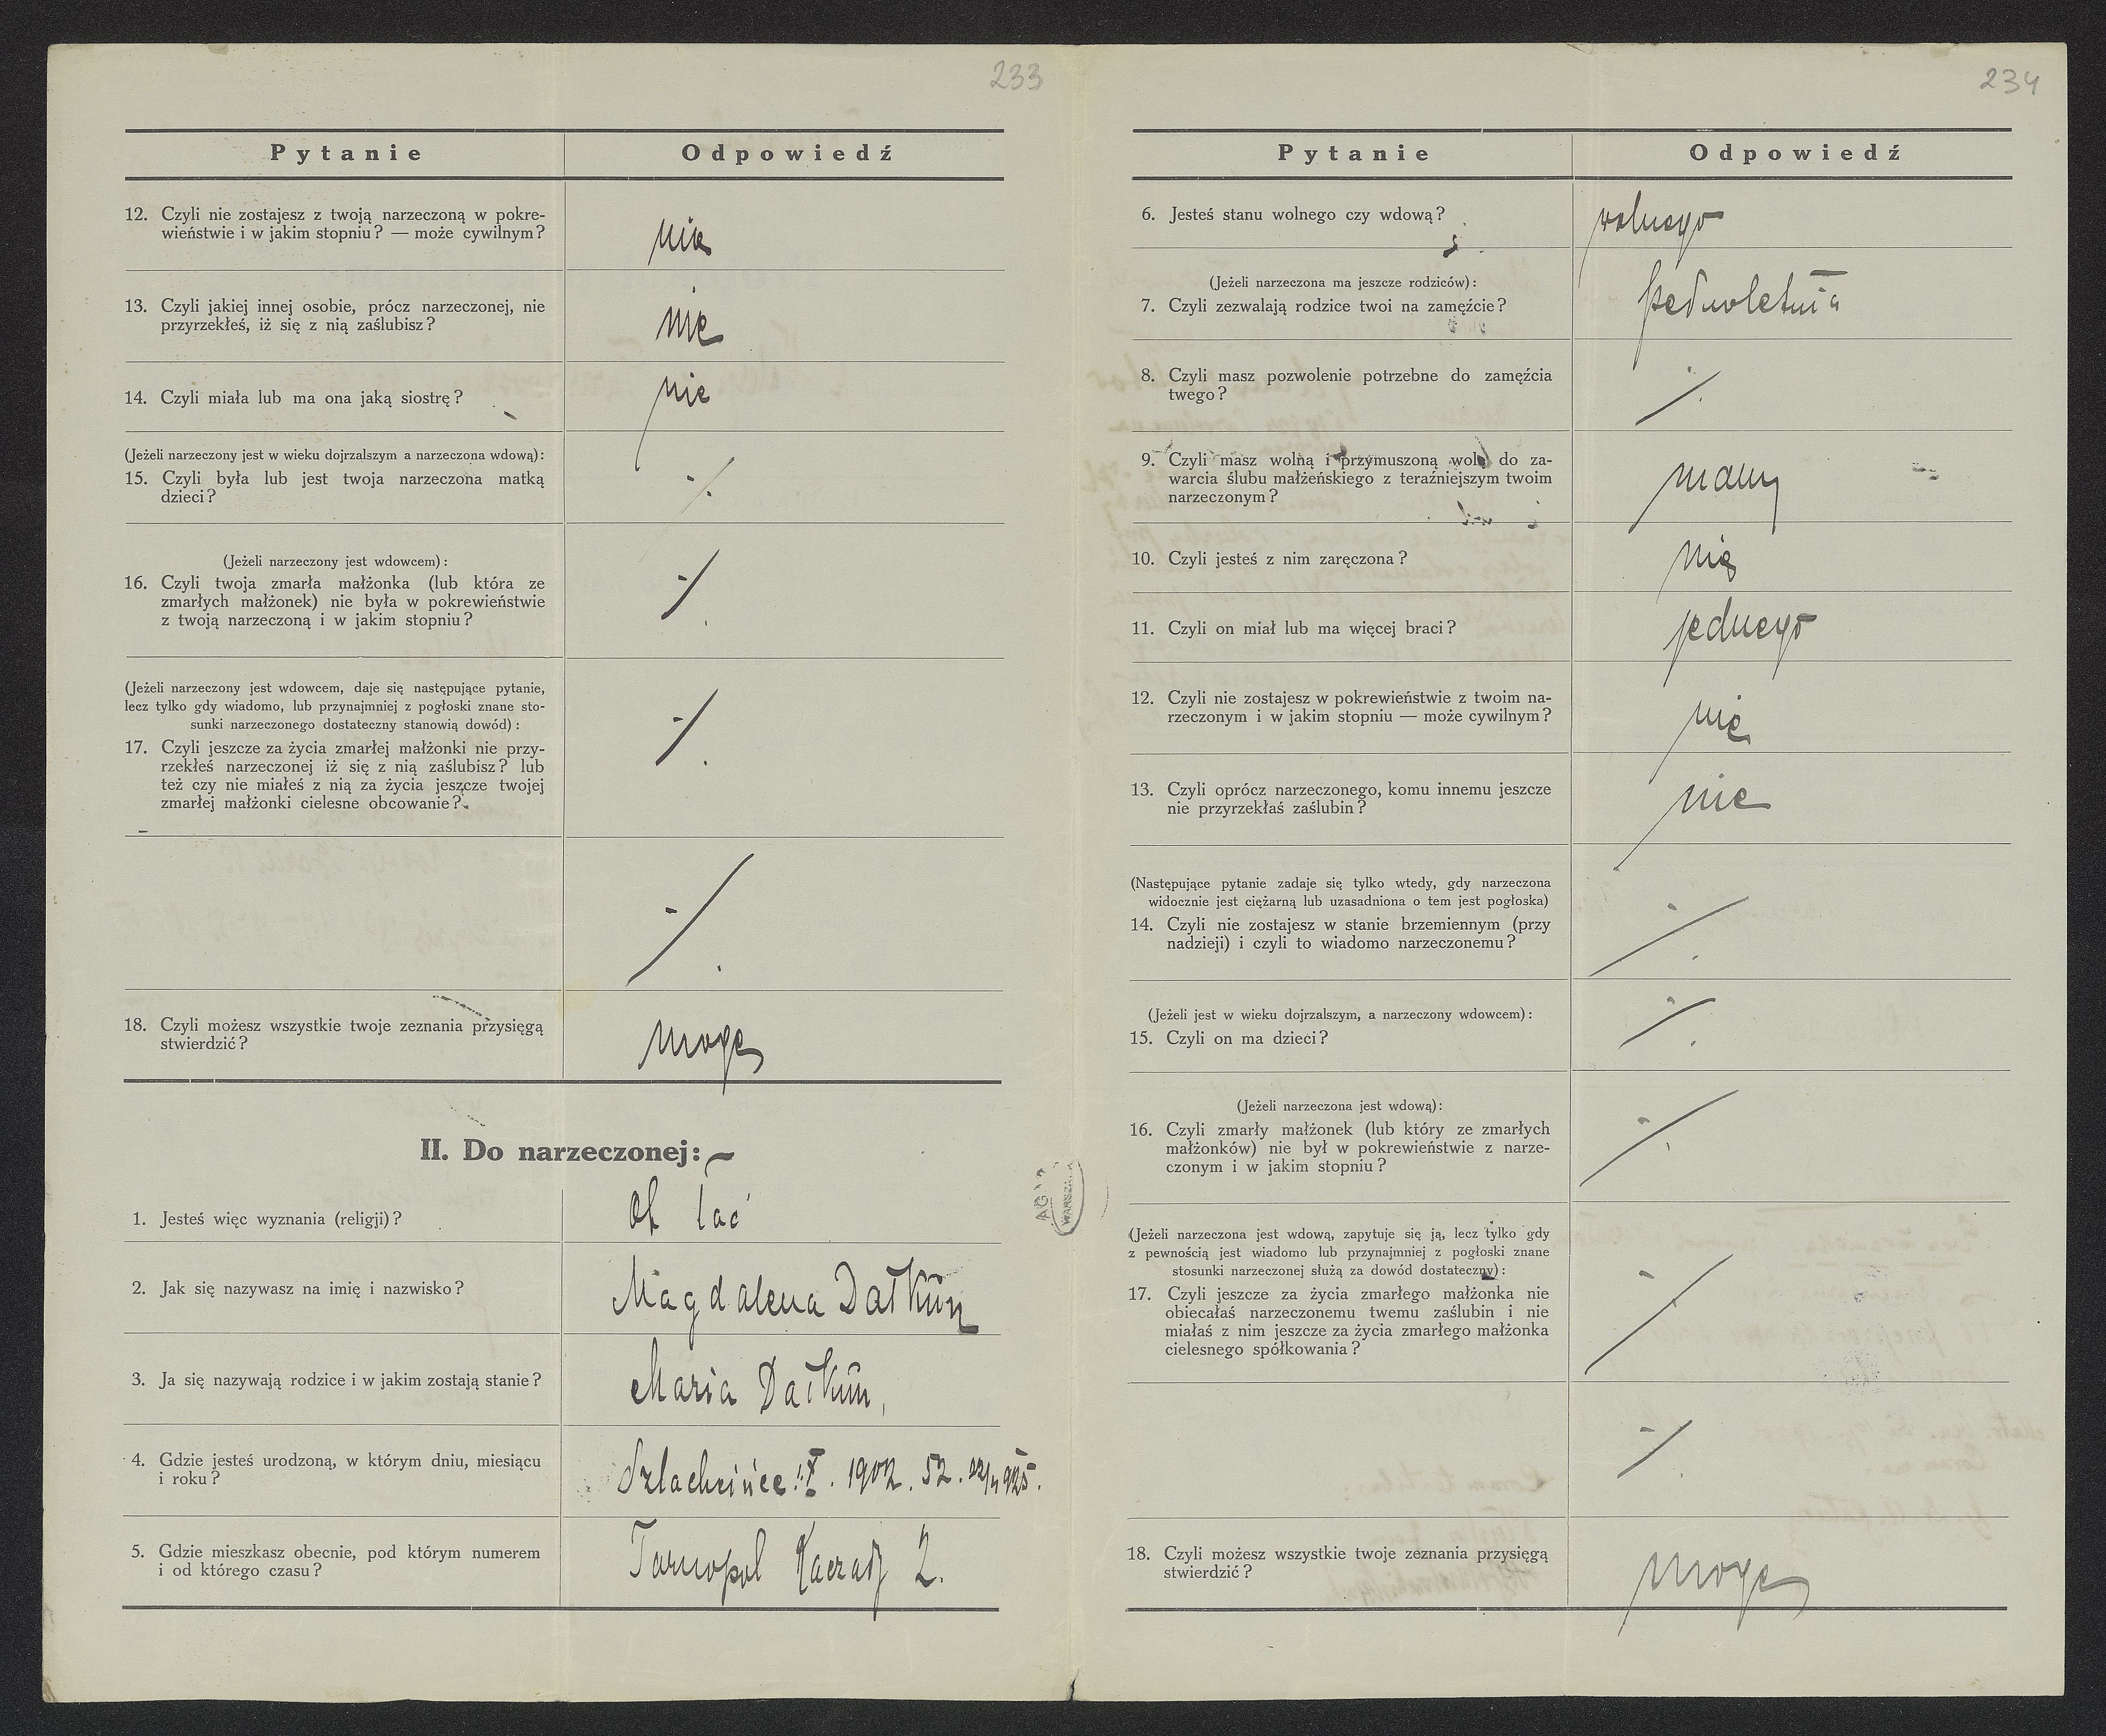 233
Pytanie Odpowiedź
12. Czyli nie zostajesz z twoją narzeczoną w pokre-
wieństwie i w jakim stopniu? — może cywilnym?
nie
13. Czyli jakiej innej osobie, prócz narzeczonej, nie
przyrzekłeś, iż się z nią zaślubisz?
nie
14. Czyli miała lub ma ona jaką siostrę?
nie
(Jeżeli narzeczony jest w wieku dojrzalszym a narzeczona wdową):
15. Czyli była lub jest twoja narzeczona matką
dzieci?
-/.
(Jeżeli narzeczony jest wdowcem):
16. Czyli twoja zmarła małżonka (lub która ze
zmarłych małżonek) nie była w pokrewieństwie
z twoją narzeczoną i w jakim stopniu?
-/.
(Jeżeli narzeczony jest wdowcem, daje się następujące pytanie,
lecz tylko gdy wiadomo, lub przynajmniej z pogłoski znane sto-
sunki narzeczonego dostateczny stanowią dowód):
17. Czyli jeszcze za życia zmarłej małżonki nie przy-
rzekłeś narzeczonej iż się z nią zaślubisz? lub
też czy nie miałeś z nią za życia jeszcze twojej
zmarłej małżonki cielesne obcowanie?
-/.
-/.
18. Czyli możesz wszystkie twoje zeznania przysięgą
stwierdzić?
mogę
II. Do narzeczonej:
1. Jesteś więc wyznania (religji)?
łać
2. Jak się nazywasz na imię i nazwisko?
Magdalena Datkun
3. Ja się nazywają rodzice i w jakim zostają stanie?
Maria Datkun,
4. Gdzie jesteś urodzoną, w którym dniu, miesiącu
i roku?
Szlachcińce 1.X. 1902. 52. 22/4 925.
5. Gdzie mieszkasz obecnie, pod którym numerem
i od którego czasu?
Tarnopol 2.
234
Pytanie Odpowiedź
6. Jesteś stanu wolnego czy wdową?
wolnego
(Jeżeli narzeczona ma jeszcze rodziców):
7. Czyli zezwalają rodzice twoi na zamęźcie?
pełnoletnia
8. Czyli masz pozwolenie potrzebne do zamęźcia
twego?
-/.
9. Czyli masz wolną i przymuszoną wolę do za-
warcia ślubu małżeńskiego z teraźniejszym twoim
narzeczonym?
mam
10. Czyli jesteś z nim zaręczona?
nie
11. Czyli on miał lub ma więcej braci?
jednego
12. Czyli nie zostajesz w pokrewieństwie z twoim na-
rzeczonym i w jakim stopniu — może cywilnym?
nie
13. Czyli oprócz narzeczonego, komu innemu jeszcze
nie przyrzekłaś zaślubin?
nie
(Następujące pytanie zadaje się tylko wtedy, gdy narzeczona
widocznie jest ciężarną lub uzasadniona o tem jest pogłoska)
14. Czyli nie zostajesz w stanie brzemiennym (przy
nadzieji) i czyli to wiadomo narzeczonemu?
-/.
(Jeżeli jest w wieku dojrzalszym, a narzeczony wdowcem):
15. Czyli on ma dzieci?
-/.
(Jeżeli narzeczona jest wdową):
16. Czyli zmarły małżonek (lub który ze zmarłych
małżonków) nie był w pokrewieństwie z narze-
czonym i w jakim stopniu?
-/.
(Jeżeli narzeczona jest wdową, zapytuje się ją, lecz tylko gdy
z pewnością jest wiadomo lub przynajmniej z pogłoski znane
stosunki narzeczonej służą za dowód dostateczny):
17. Czyli jeszcze za życia zmarłego małżonka nie
obiecałaś narzeczonemu twemu zaślubin i nie
miałaś z nim jeszcze za życia zmarłego małżonka
cielesnego spółkowania?
-/.
-/.
18. Czyli możesz wszystkie twoje zeznania przysięgą
stwierdzić?
mogę